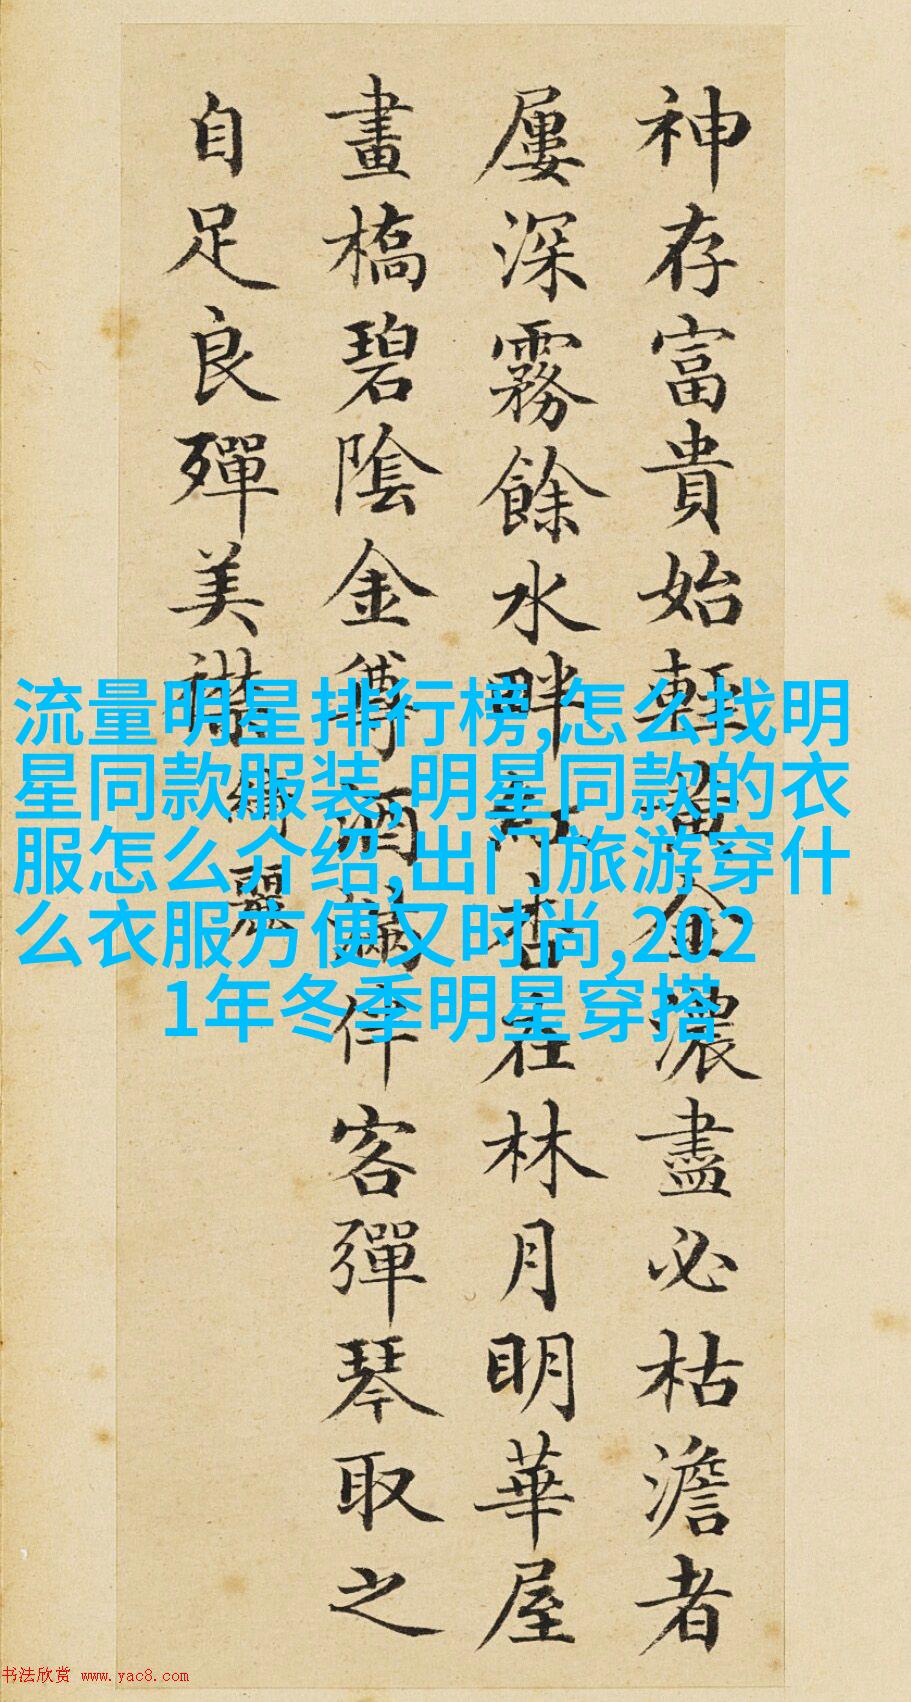 神存富貴始輕黃金濃盡必枯澹者
屢深霧餘水畔紅杏在林月明華屋
畫橋碧陰金酒滿伴客彈琴取之
自足良殫美襟
綺麗
流量明星排行榜,怎么找明
星同款服装,明星同款的衣
服怎么介绍,出门旅游穿什
么衣服方便又时尚,202
1年冬季明星穿搭
书法欣赏 www.yac8.com